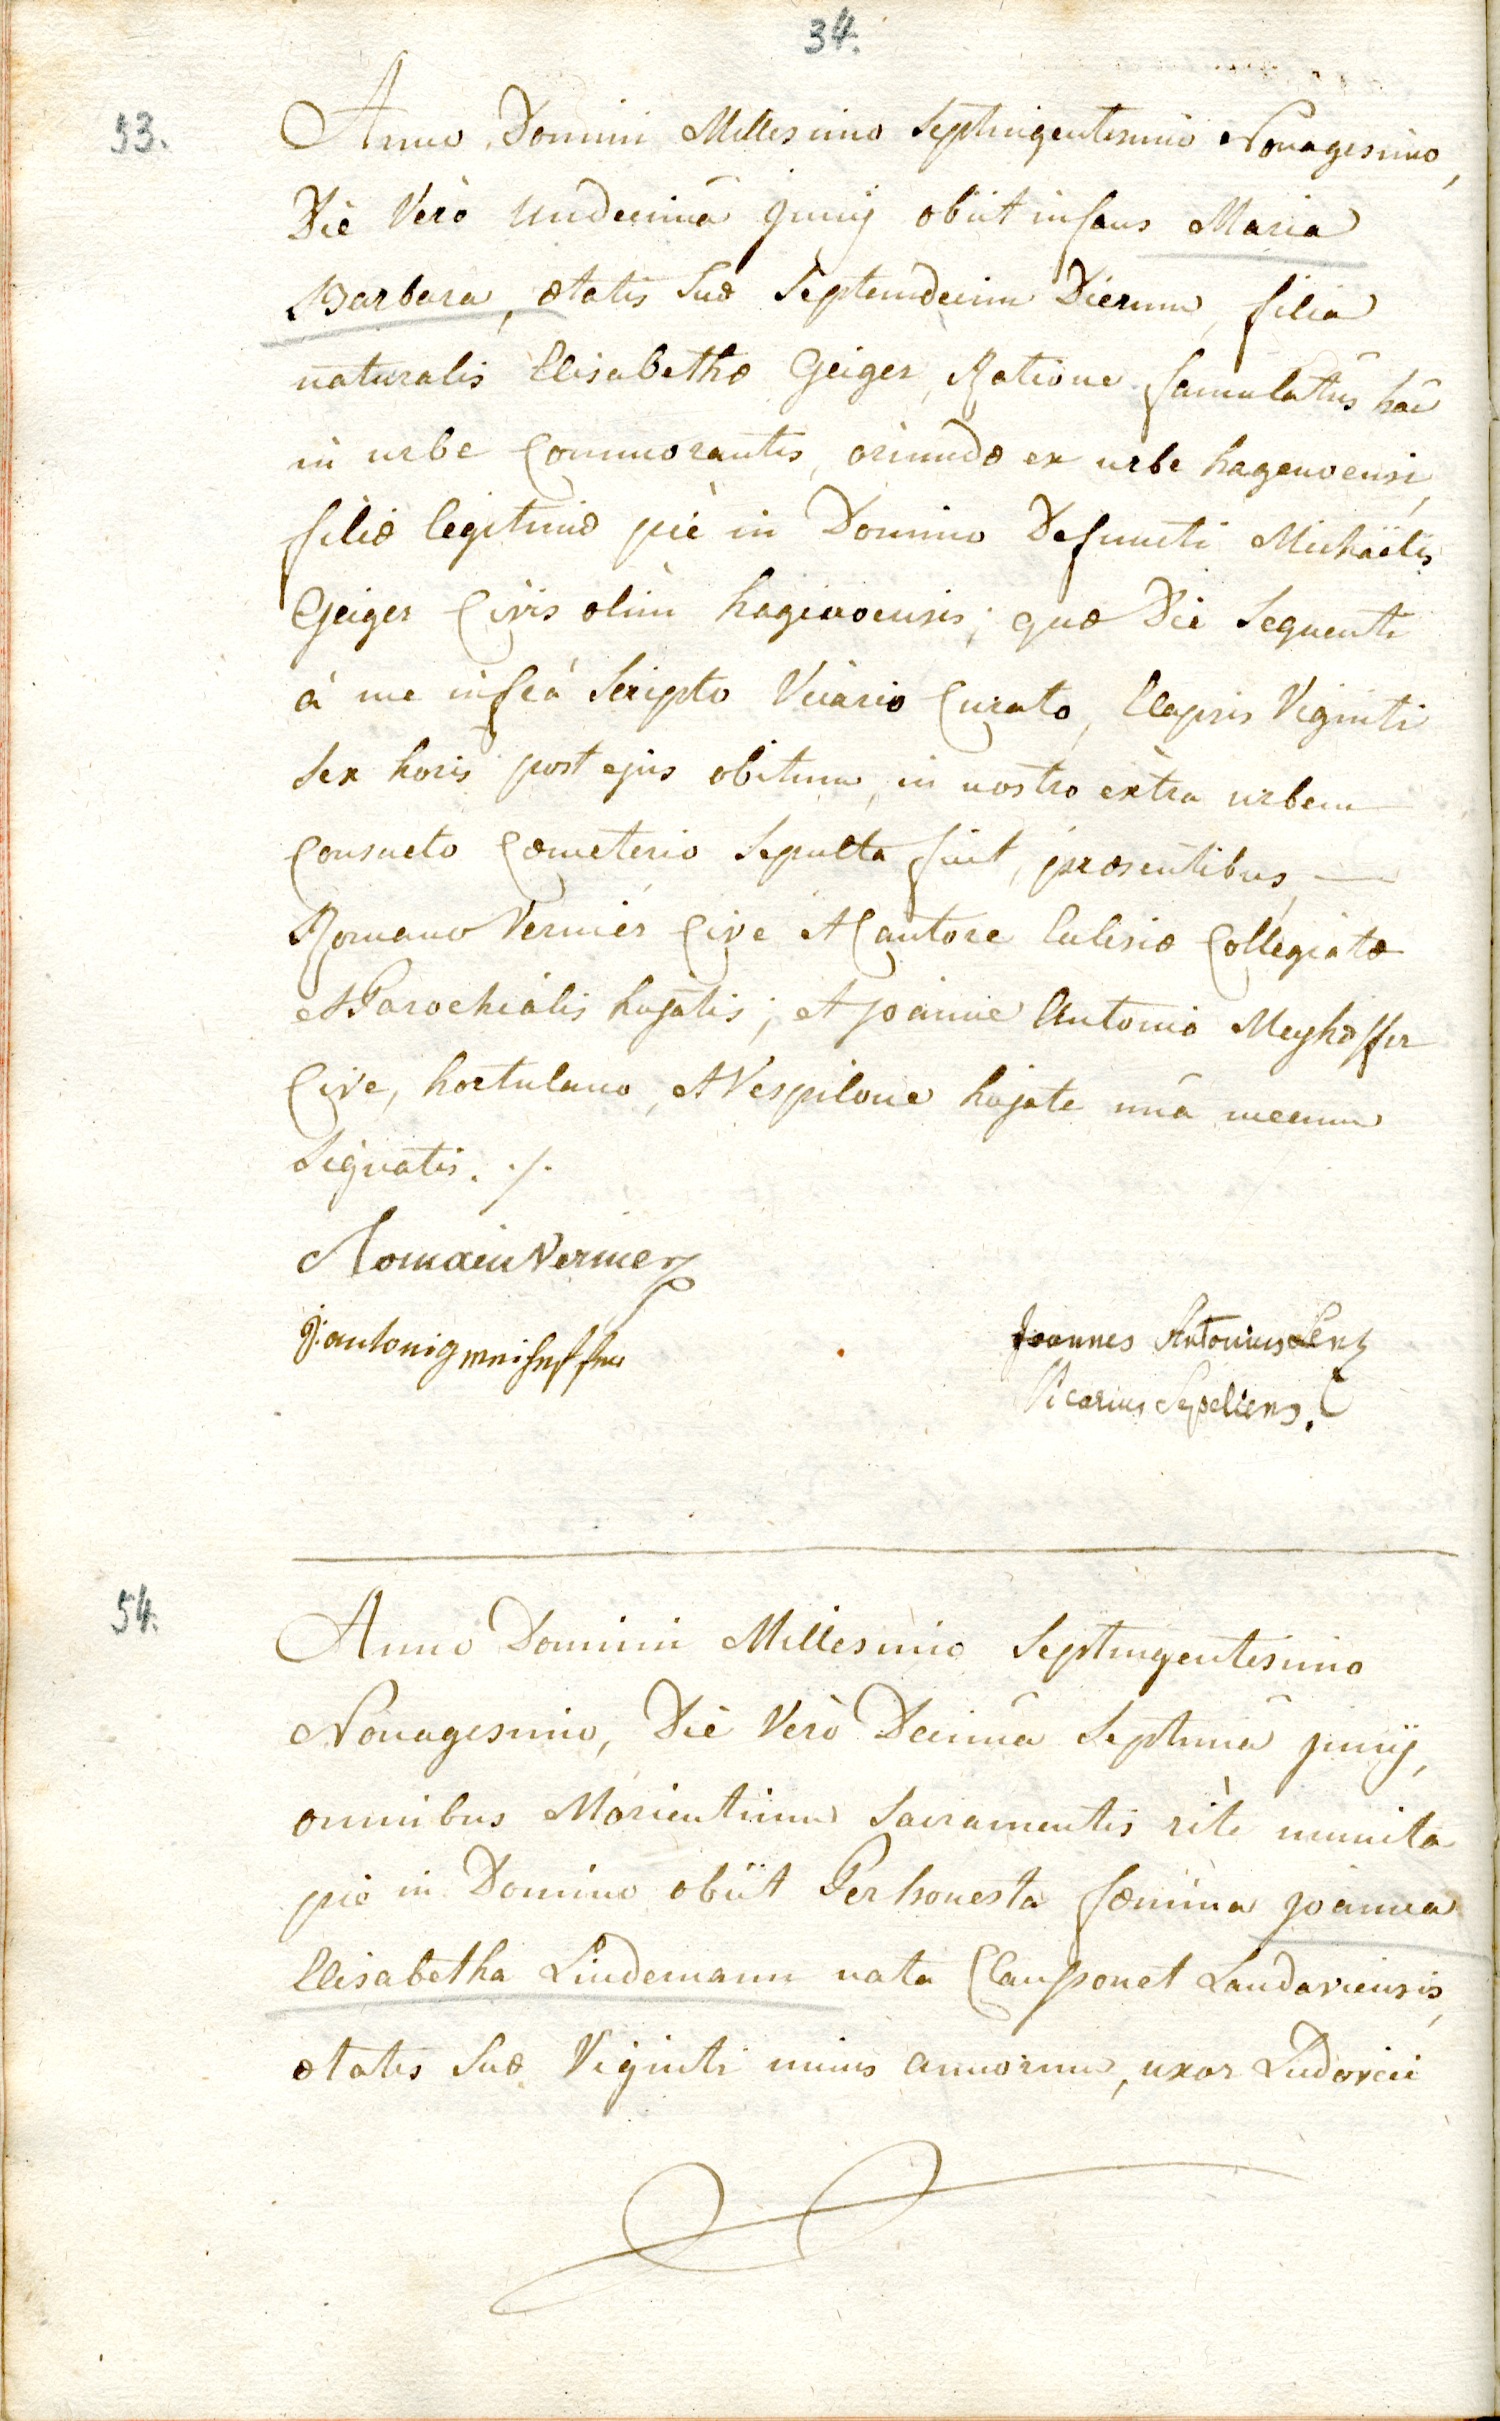 34.
53.
Anno Domini Millesimo Septingentesimo Nonagesimo,
Die Verò undecimâ Junij obiit infans Maria
Barbara, ætatis suæ septemdecim Dierum, filia
naturalis Elisabethæ Geiger, Ratione famulatûs hâc
in urbe Commorantis, oriundæ ex urbe hagenoensi,
filiæ legitimæ piè in Domino Defuncti Michaëlis
Geiger Civis olim hagenoensis; quæ Die Sequenti
à me infrà Scripto Vicario Curato, Elapsis Viginti
Sex horis post ejus obitum, in nostro extra urbem
Consueto Cœmeterio Sepulta fuit, præsentibus,
Romano Vernier Cive et Cantore Eclesiæ Collegiatæ
et Parochialis hujatis; et joanne Antonio Meyhöffer
Cive, hortulano, et Vespilone hujate unâ mecum
Signatis. ./.
Romain Vernier
j: antonig meihoffer
Joannes Antonius Lenz
Vicarius Sepeliens.
54.
Anno Domini Millesimo Septingentesimo
Nonagesimo, Die Verò Decimâ Septimâ junij,
omnibus Morientium Sacramentis ritè munita
piè in Domino obiit Perhonesta fœmina joanna
Elisabetha Lindemann nata Clausonet Landaviensis,
ætatis suæ Viginti unius annorum, uxor Ludovici